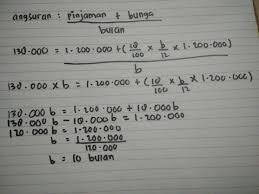 angsuran : pinjaman + bunga
bulan
130.000 = 1.200.000 + (10/100 × b/12 × 1.200.000)
b
130.000 × b = 1.200.000 + (10/100 × b/12 × 1.200.000)
130.000 b = 1.200.000 + 10.000b
130.000 b - 10.000b = 1.200.000
120.000 b = 1.200.000
b = 1.200.000
120.000
b = 10 bulan